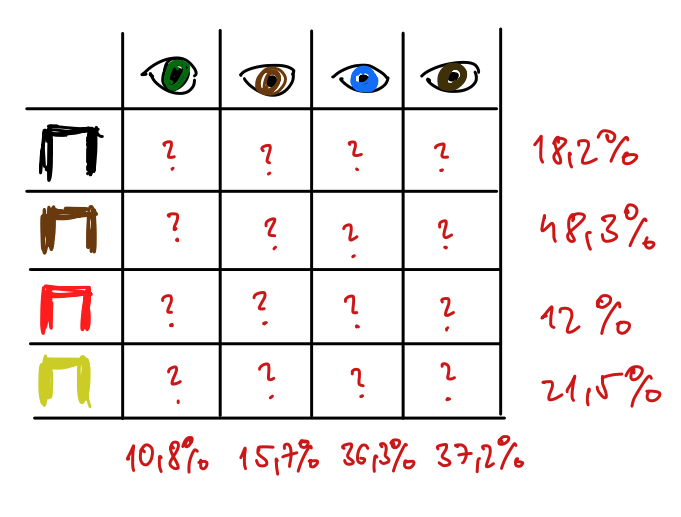 ? ? ? ? 18,2%
? ? ? ? 48,3%
? ? ? ? 12 %
? ? ? ? 21,5%
10,8% 15,7% 36,3% 37,2%